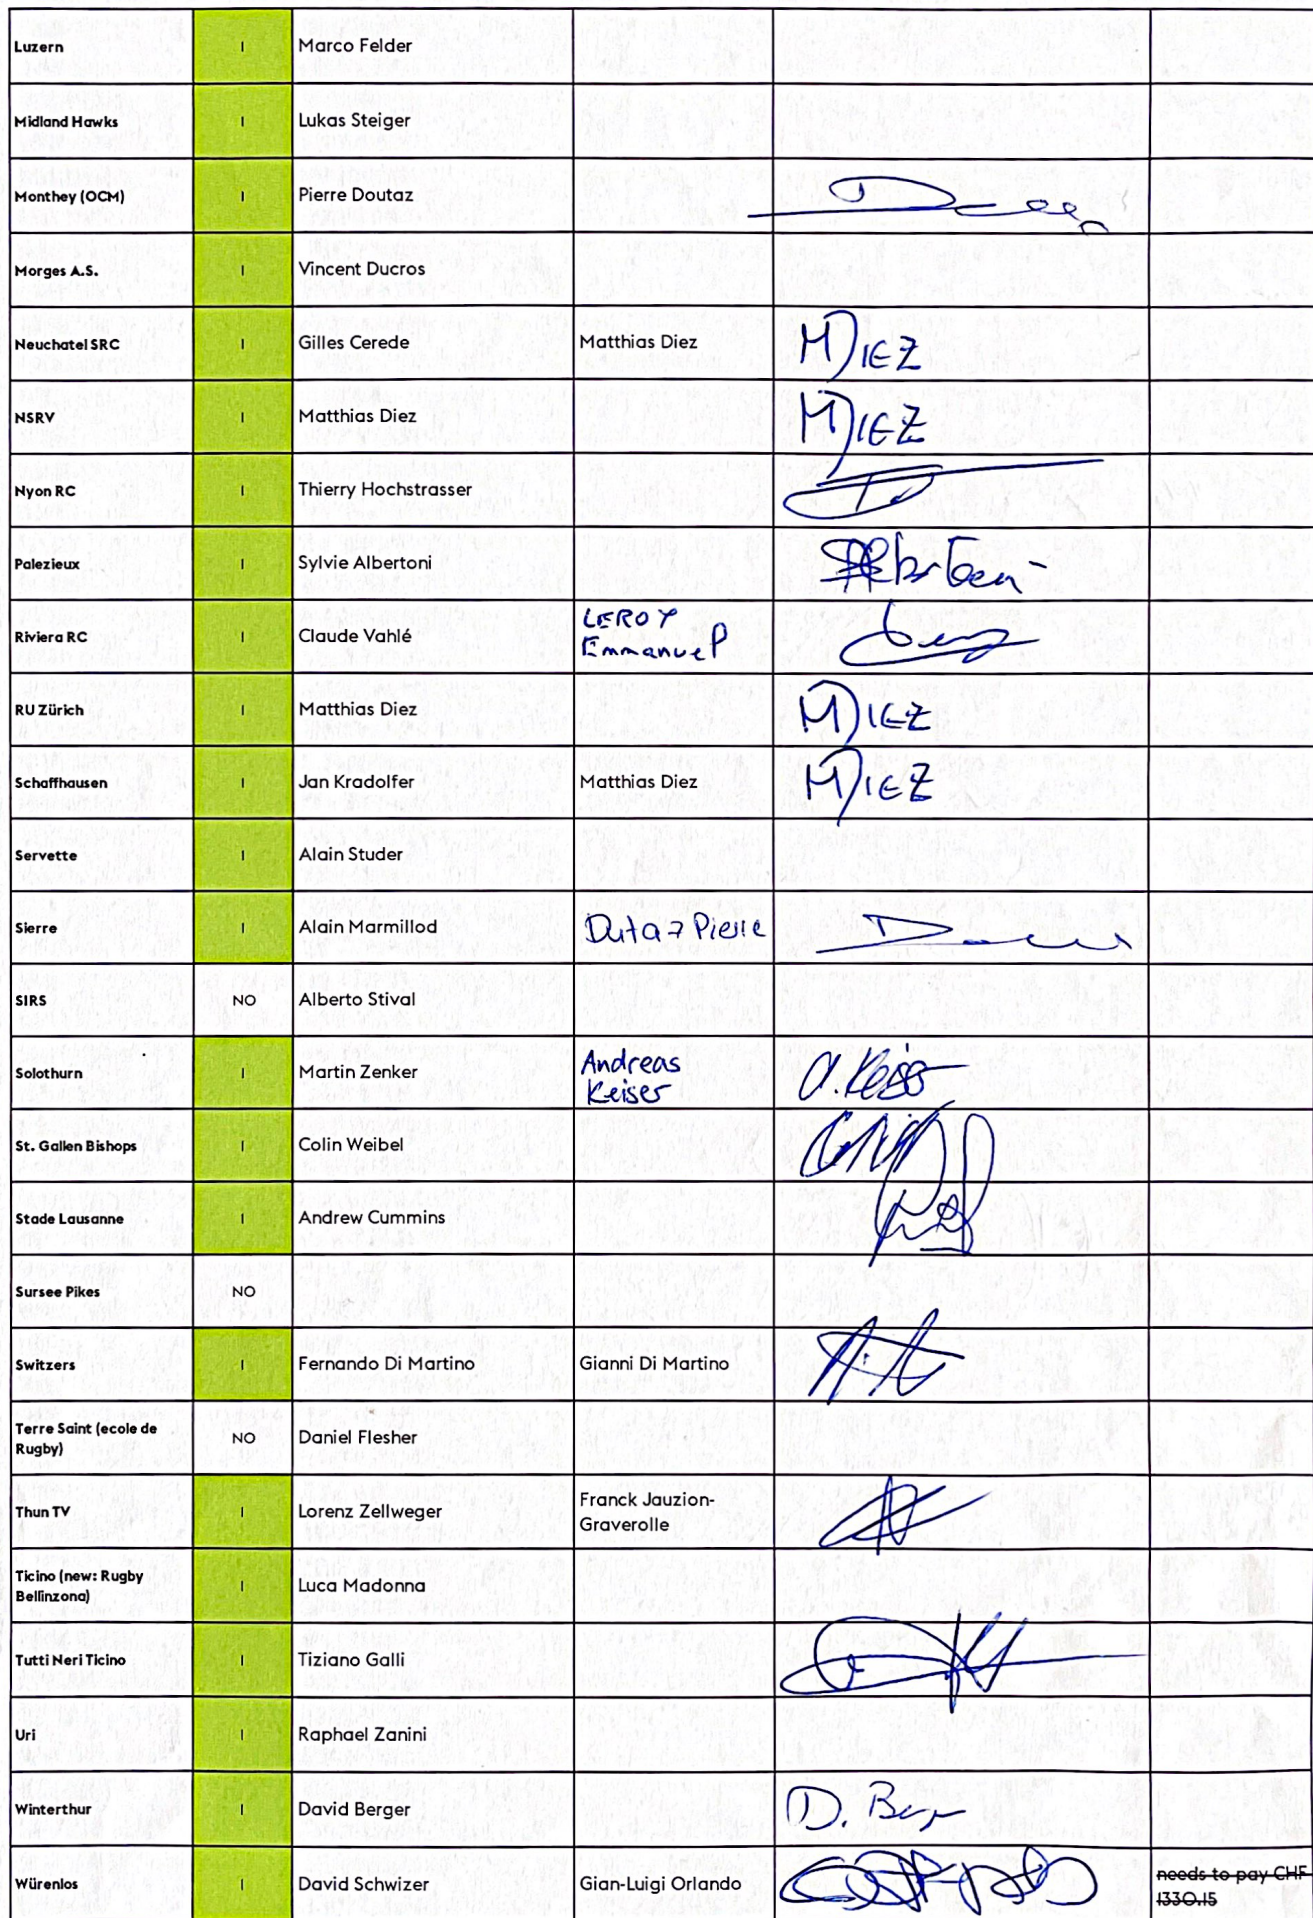 Luzern I Marco Felder
Midland Hawks I Lukas Steiger
Monthey (OCM) I Pierre Doutaz
Morges A.S. I Vincent Ducros
Neuchatel SRC I Gilles Cerede Matthias Diez MDIEZ
NSRV I Matthias Diez MDIEZ
Nyon RC I Thierry Hochstrasser
Palezieux I Sylvie Albertoni
Riviera RC I Claude Vahlé LEROY
Emmanuel
RU Zürich I Matthias Diez MDIEZ
Schaffhausen I Jan Kradolfer Matthias Diez MDIEZ
Servette I Alain Studer
Sierre I Alain Marmillod Dutaz Pierre
SIRS NO Alberto Stival
Solothurn I Martin Zenker Andreas
Keiser
St. Gallen Bishops I Colin Weibel
Stade Lausanne I Andrew Cummins
Sursee Pikes NO
Switzers I Fernando Di Martino Gianni Di Martino
Terre Saint (ecole de
Rugby) NO Daniel Flesher
Thun TV I Lorenz Zellweger Franck Jauzion-
Graverolle
Ticino (new: Rugby
Bellinzona) I Luca Madonna
Tutti Neri Ticino I Tiziano Galli
Uri I Raphael Zanini
Winterthur I David Berger
Würenlos I David Schwizer Gian-Luigi Orlando needs to pay CHF
1330.15